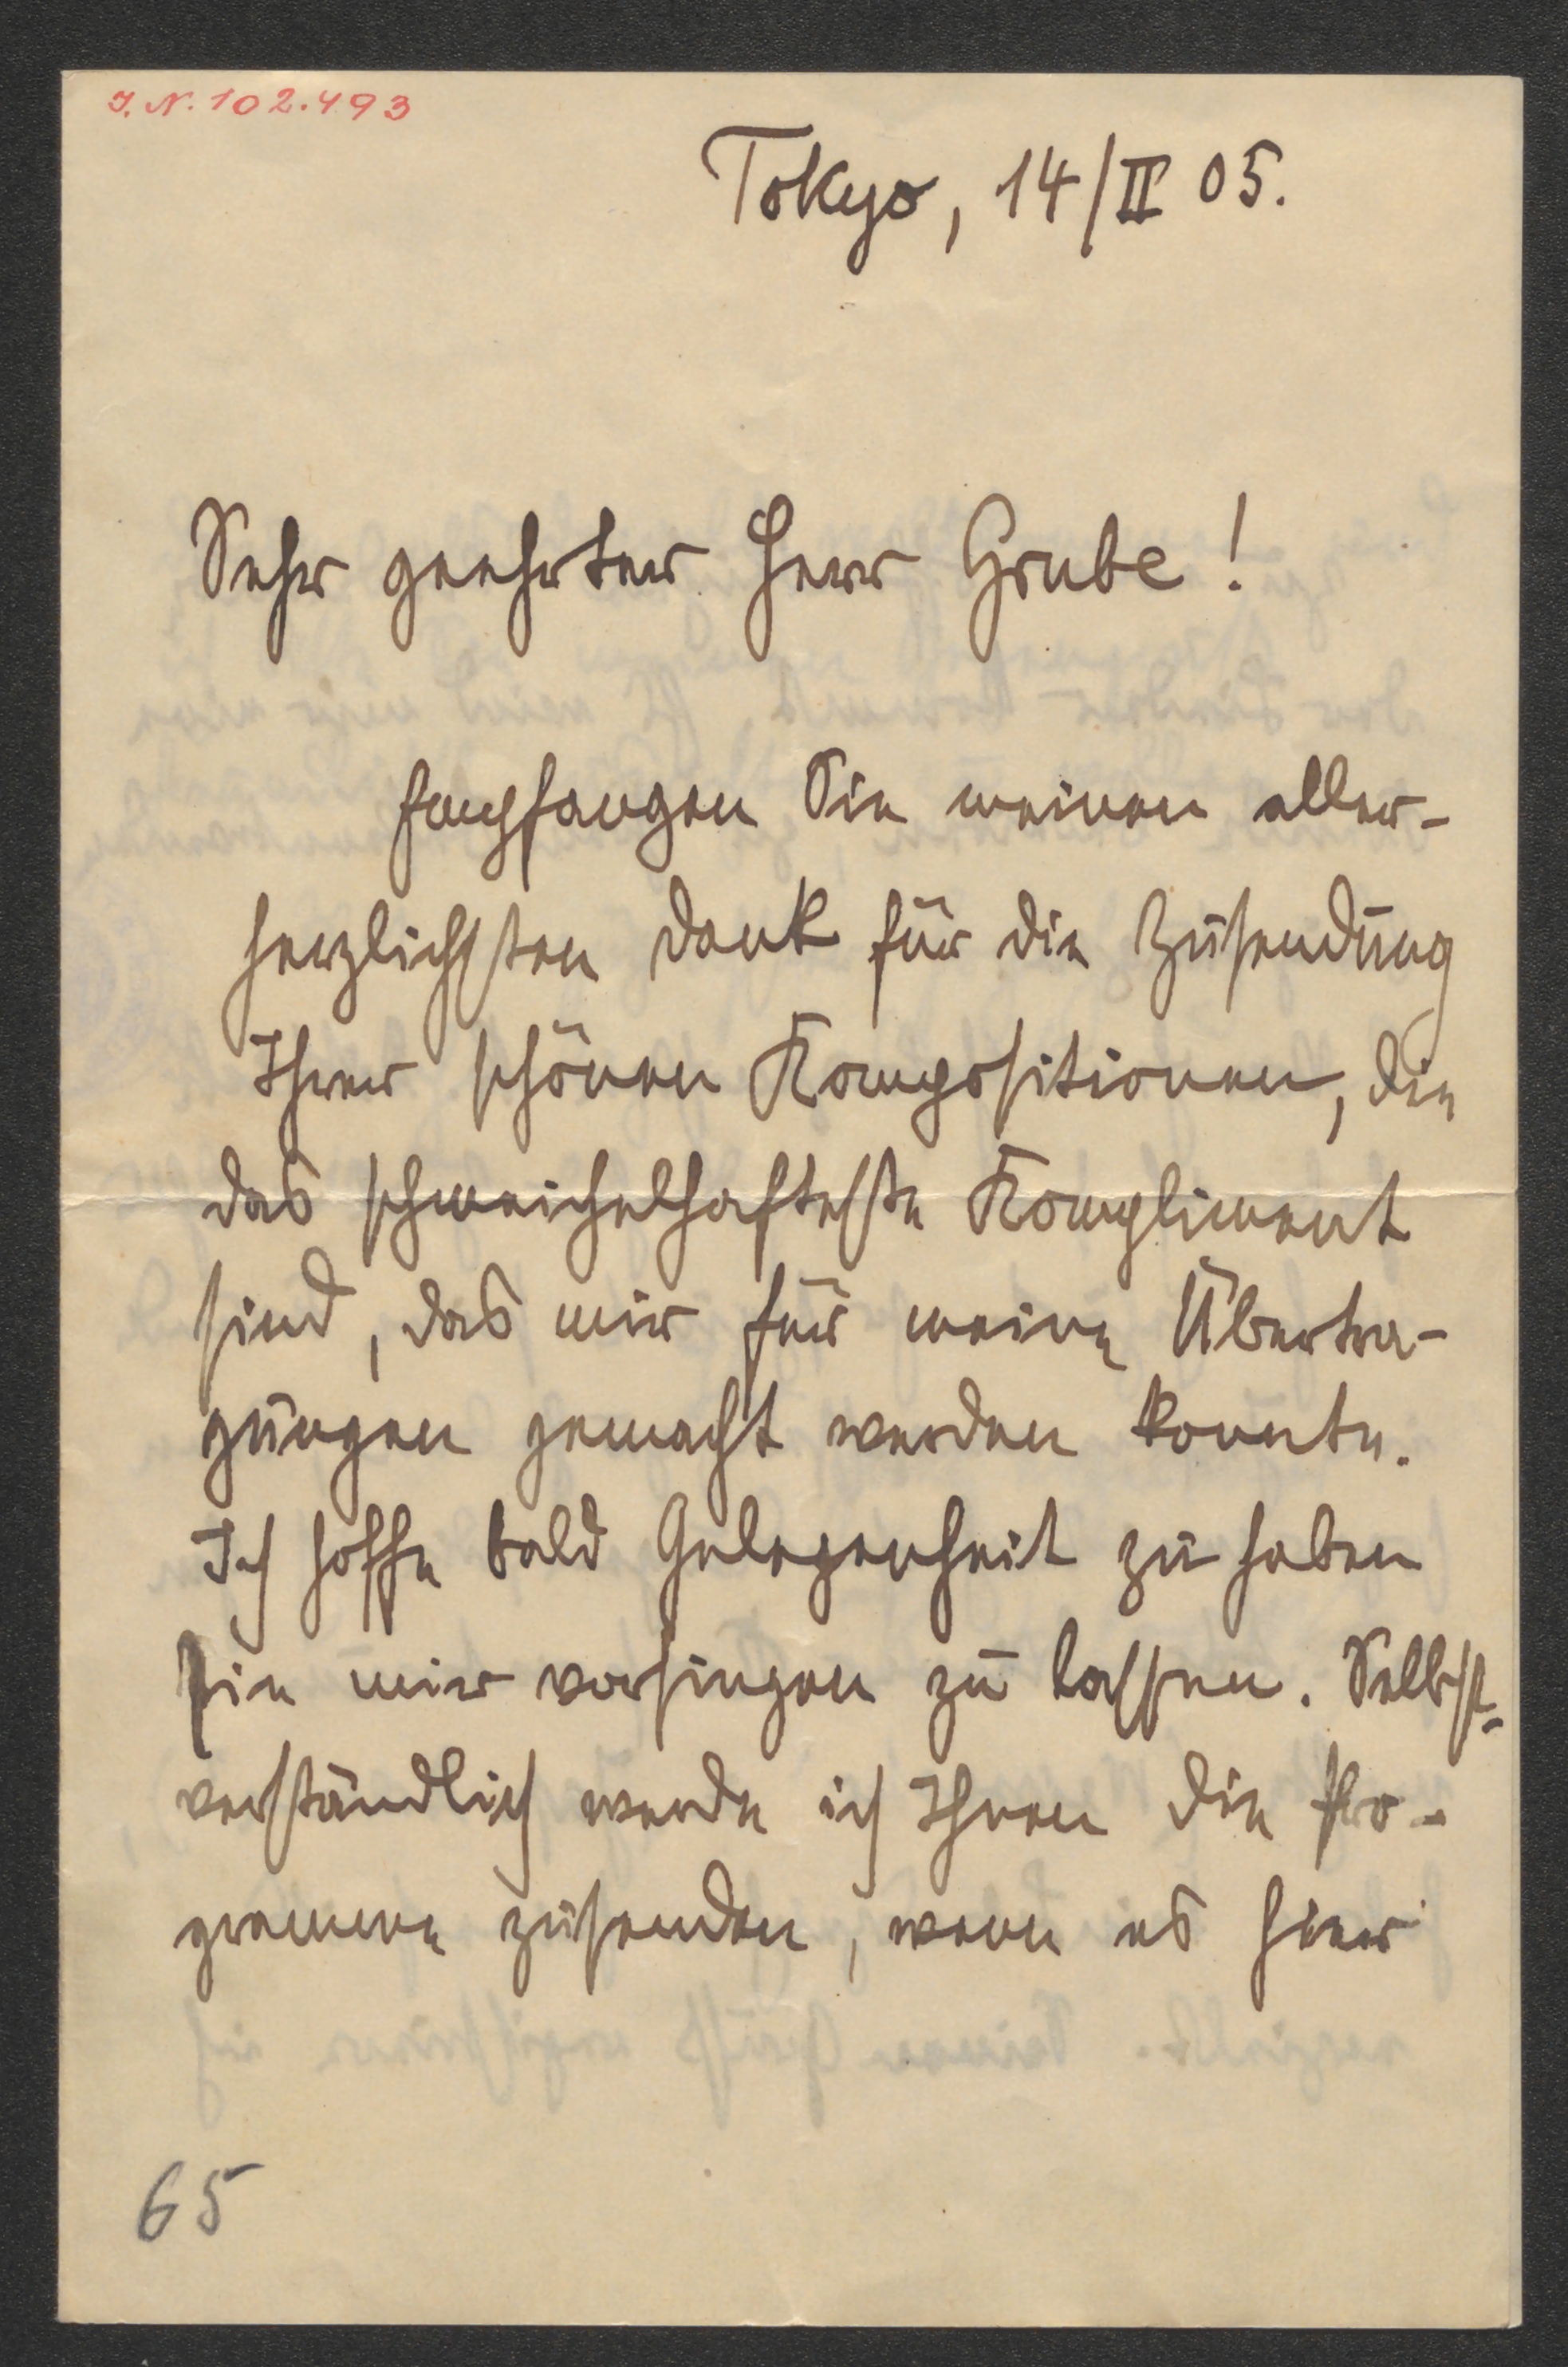 J. N. 102.493
Tokyo, 14/II 05.
Sehr geehrter Herr Grube!
Empfangen Sie meinen aller-
herzlichsten Dank für die Zusendung
Ihrer schönen Kompositionen, die
das schmeichelhafteste Kompliment
sind, das mir für meine Übertra-
gungen gemacht werden konnte.
Ich hoffe bald Gelegenheit zu haben
sie mir vorsingen zu lassen. Selbst-
verständlich werde ich Ihnen die Pro-
gramme zusenden, wenn es hier
65